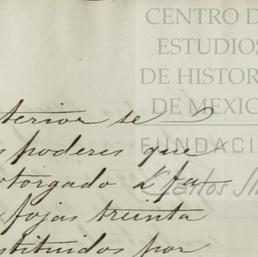 CENTRO D
ESTUDIOS
DE HISTOR
DE MEXIC
FUNDACI
Carlos Sl
terior se
s poderes que
otorgado á fa
fojas treinta
stituidos por